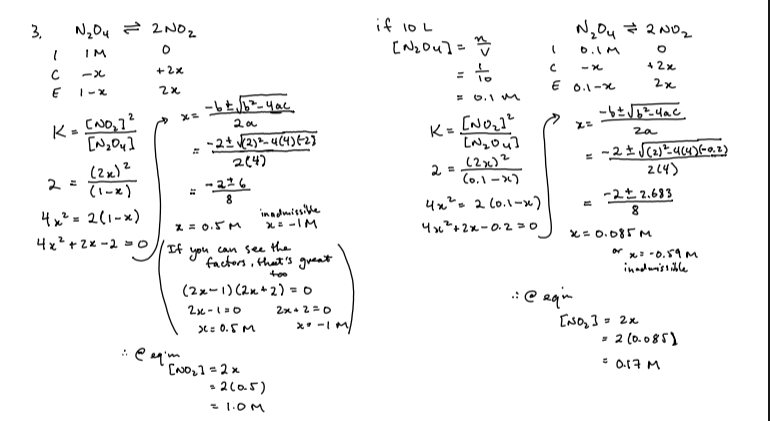 3. N₂O₄ ⇌ 2NO₂
I 1M 0
C -x +2x
E 1-x 2x
K = [NO₂]² / [N₂O₄]
2 = (2x)² / (1-x)
4x² = 2(1-x)
4x² + 2x - 2 = 0
x = (-b ± √(b²-4ac)) / 2a
= (-2 ± √((2)²-4(4)(-2))) / 2(4)
= (-2 ± 6) / 8
inadmissible
x = 0.5 M x = -1M
(If you can see the
factors, that's great
too
(2x-1)(2x+2) = 0
2x-1=0 2x+2=0
x=0.5 M x=-1 M)
∴ @ eq'm
[NO₂] = 2x
= 2(0.5)
= 1.0 M
if 10 L
[N₂O₄] = n/V
= 1/10
= 0.1 M
N₂O₄ ⇌ 2NO₂
I 0.1M 0
C -x +2x
E 0.1-x 2x
K = [NO₂]² / [N₂O₄]
2 = (2x)² / (0.1-x)
4x² = 2(0.1-x)
4x²+2x-0.2=0
x = (-b ± √(b²-4ac)) / 2a
= (-2 ± √((2)²-4(4)(-0.2))) / 2(4)
= (-2 ± 2.683) / 8
x = 0.085 M
or x = -0.59 M
inadmissible
∴ @ eq'm
[NO₂] = 2x
= 2(0.085)
= 0.17 M